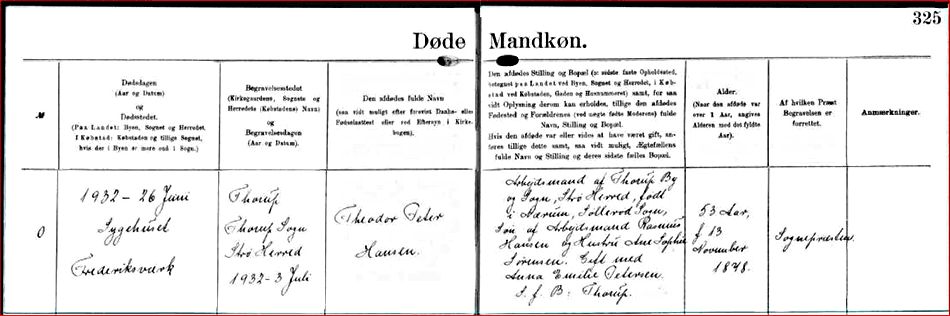 325
Døde Mandkøn.
№
Dødsdagen
(Aar og Datum)
og
Dødsstedet.
(Paa Landet: By, Sogn og Herred.
I Købstad: Købstaden og tillige Sognet,
hvis der i Byen er mere end 1 Sogn.)
Begravelsesstedet
(Kirkegaardens, Sognets og
Herredets (Købstadens) Navn)
og
Begravelsesdagen
(Aar og Datum).
Den afdødes fulde Navn
(saa vidt muligt efter forevist Daabs- eller
Fødselsattest eller ved Eftersyn i Kirke-
bogen).
Den afdødes Stilling og Bopæl (ɔ: sidste faste Opholdssted,
betegnet paa Landet ved Byen, Sognet og Herredet, i Køb-
stad ved Købstaden, Gaden og Husnummeret) samt, for saa
vidt Oplysning derom kan erholdes, tillige den afdødes
Fødested og Forældrenes (ved uægte fødte Moderens) fulde
Navn, Stilling og Bopæl.
Hvis den afdøde var eller vides at have været gift, an-
føres tillige dette samt, saa vidt muligt, Ægtefællens
fulde Navn og Stilling og deres sidste fælles Bopæl.
Alder.
(Naar den afdøde var
over 1 Aar, angives
Alderen med det fyldte
Aar).
Af hvilken Præst
Begravelsen er
forrettet.
Anmærkninger.
0
1932 - 26 Juni
Sygehuset
Frederiksværk
Thorup
Thorup Sogn
Strø Herred
1932 - 3 Juli
Theodor Peter
Hansen.
Arbejdsmand af Thorup By
og Sogn, Strø Herred, født
i Nærum, Søllerød Sogn,
Søn af Arbejdsmand Rasmus
Hansen og Hustru Ane Sophie
Sørensen. Gift med
Anna Emilie Petersen.
S. f. B: Thorup.
53 Aar,
f 13
November
1878.
Sognepræsten.